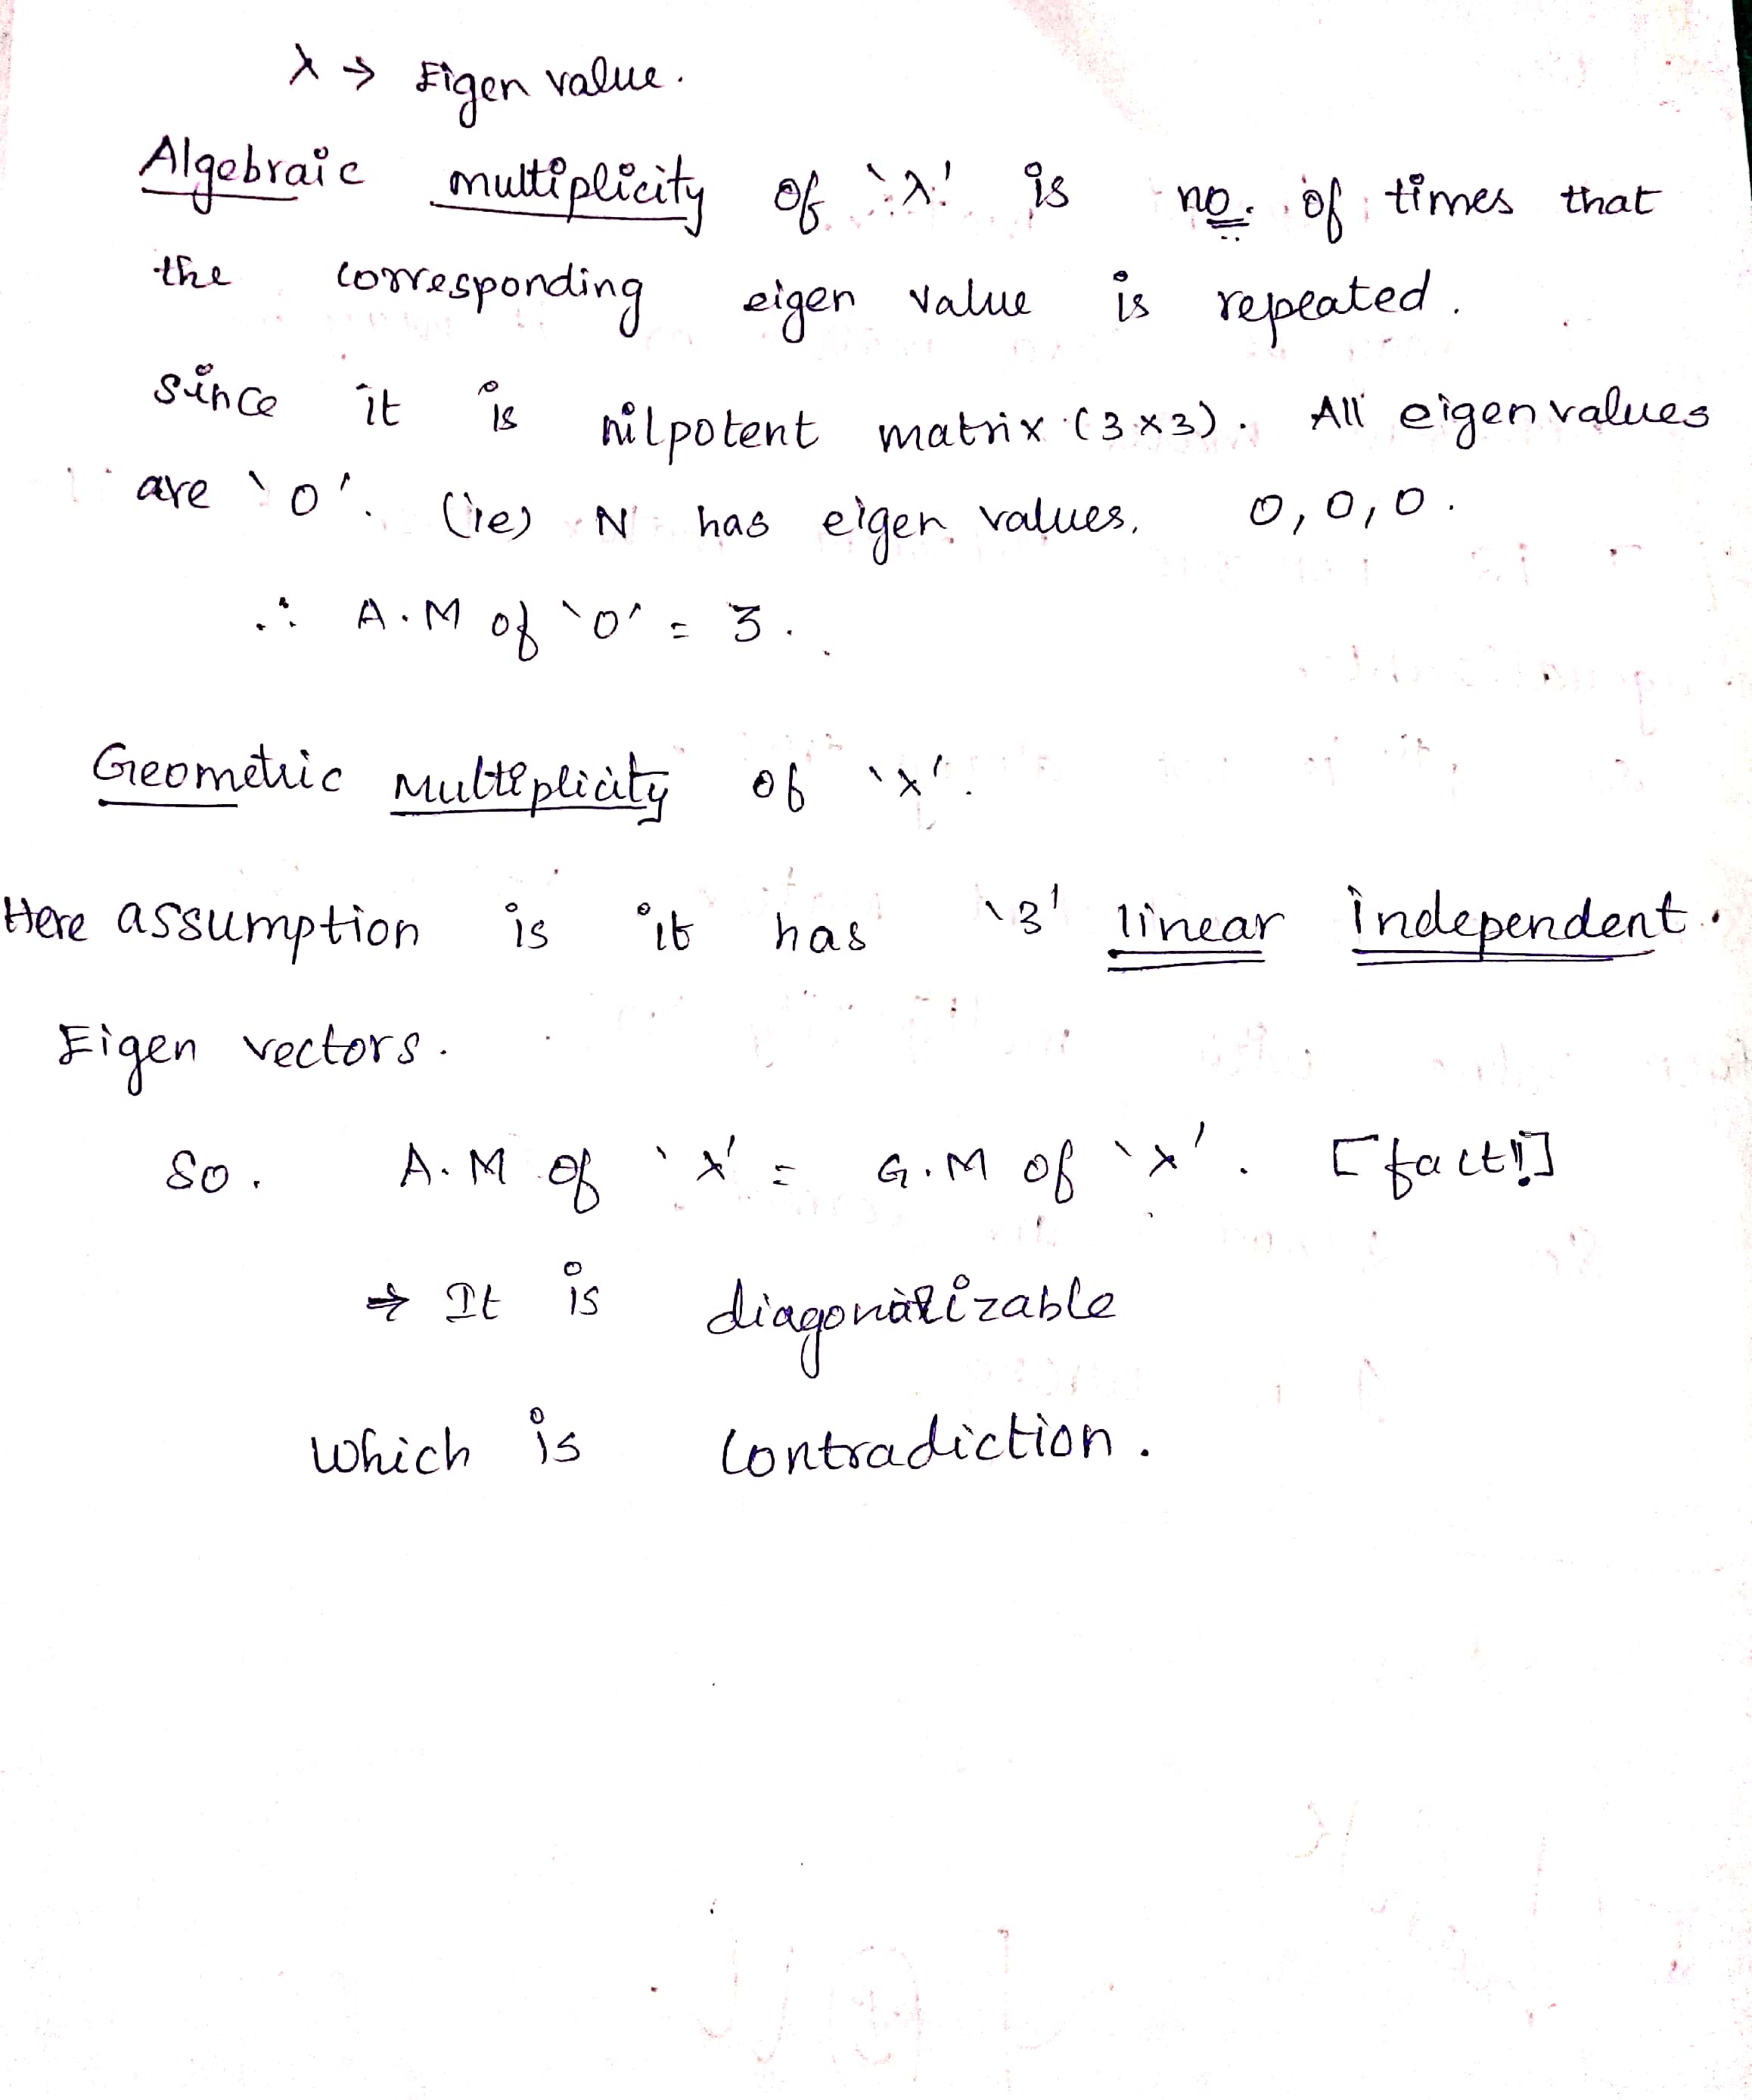 λ → Eigen value.
Algebraic multiplicity of 'λ' is no. of times that
the corresponding eigen value is repeated.
Since it is nilpotent matrix (3x3). All eigen values
are '0'. (ie) N has eigen values, 0,0,0.
∴ A.M of '0' = 3.
Geometric Multiplicity of 'λ'.
Here assumption is it has '3' linear independent.
Eigen vectors.
So. A.M of 'λ' = G.M of 'λ'. [fact!!]
⇒ It is diagonalizable
which is contradiction.